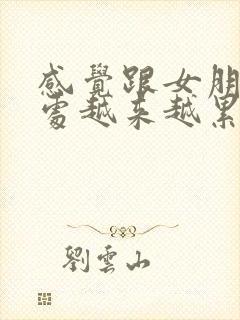 感覺跟女朋
處越來越累
劉雲山